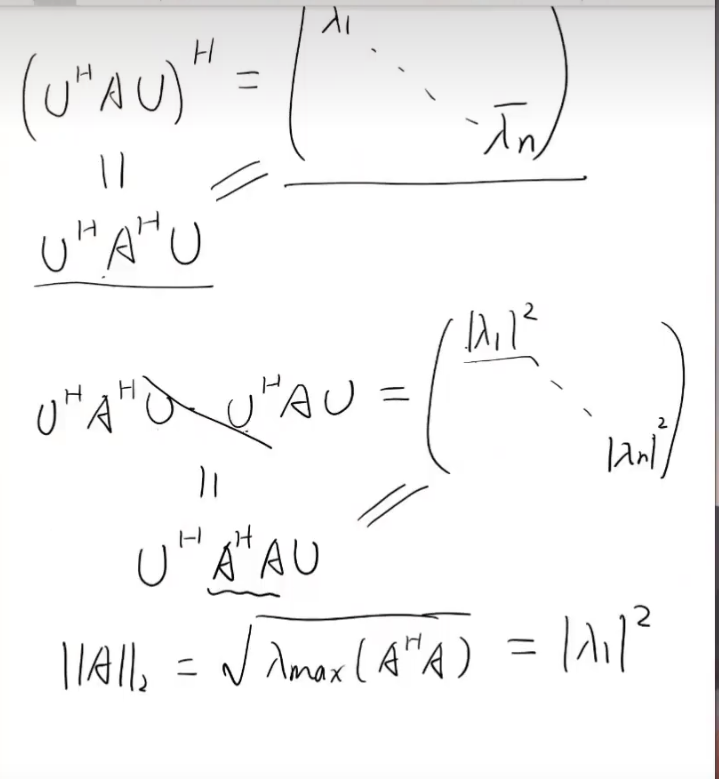 (UᴴAU)ᴴ = (λ₁ ⋱ λ̅n)
||
UᴴAᴴU
UᴴAᴴU · UᴴAU = (|λ₁|² ⋱ |λn|²)
||
UᴴAᴴAU
||A||₂ = √λmax(AᴴA) = |λ₁|²